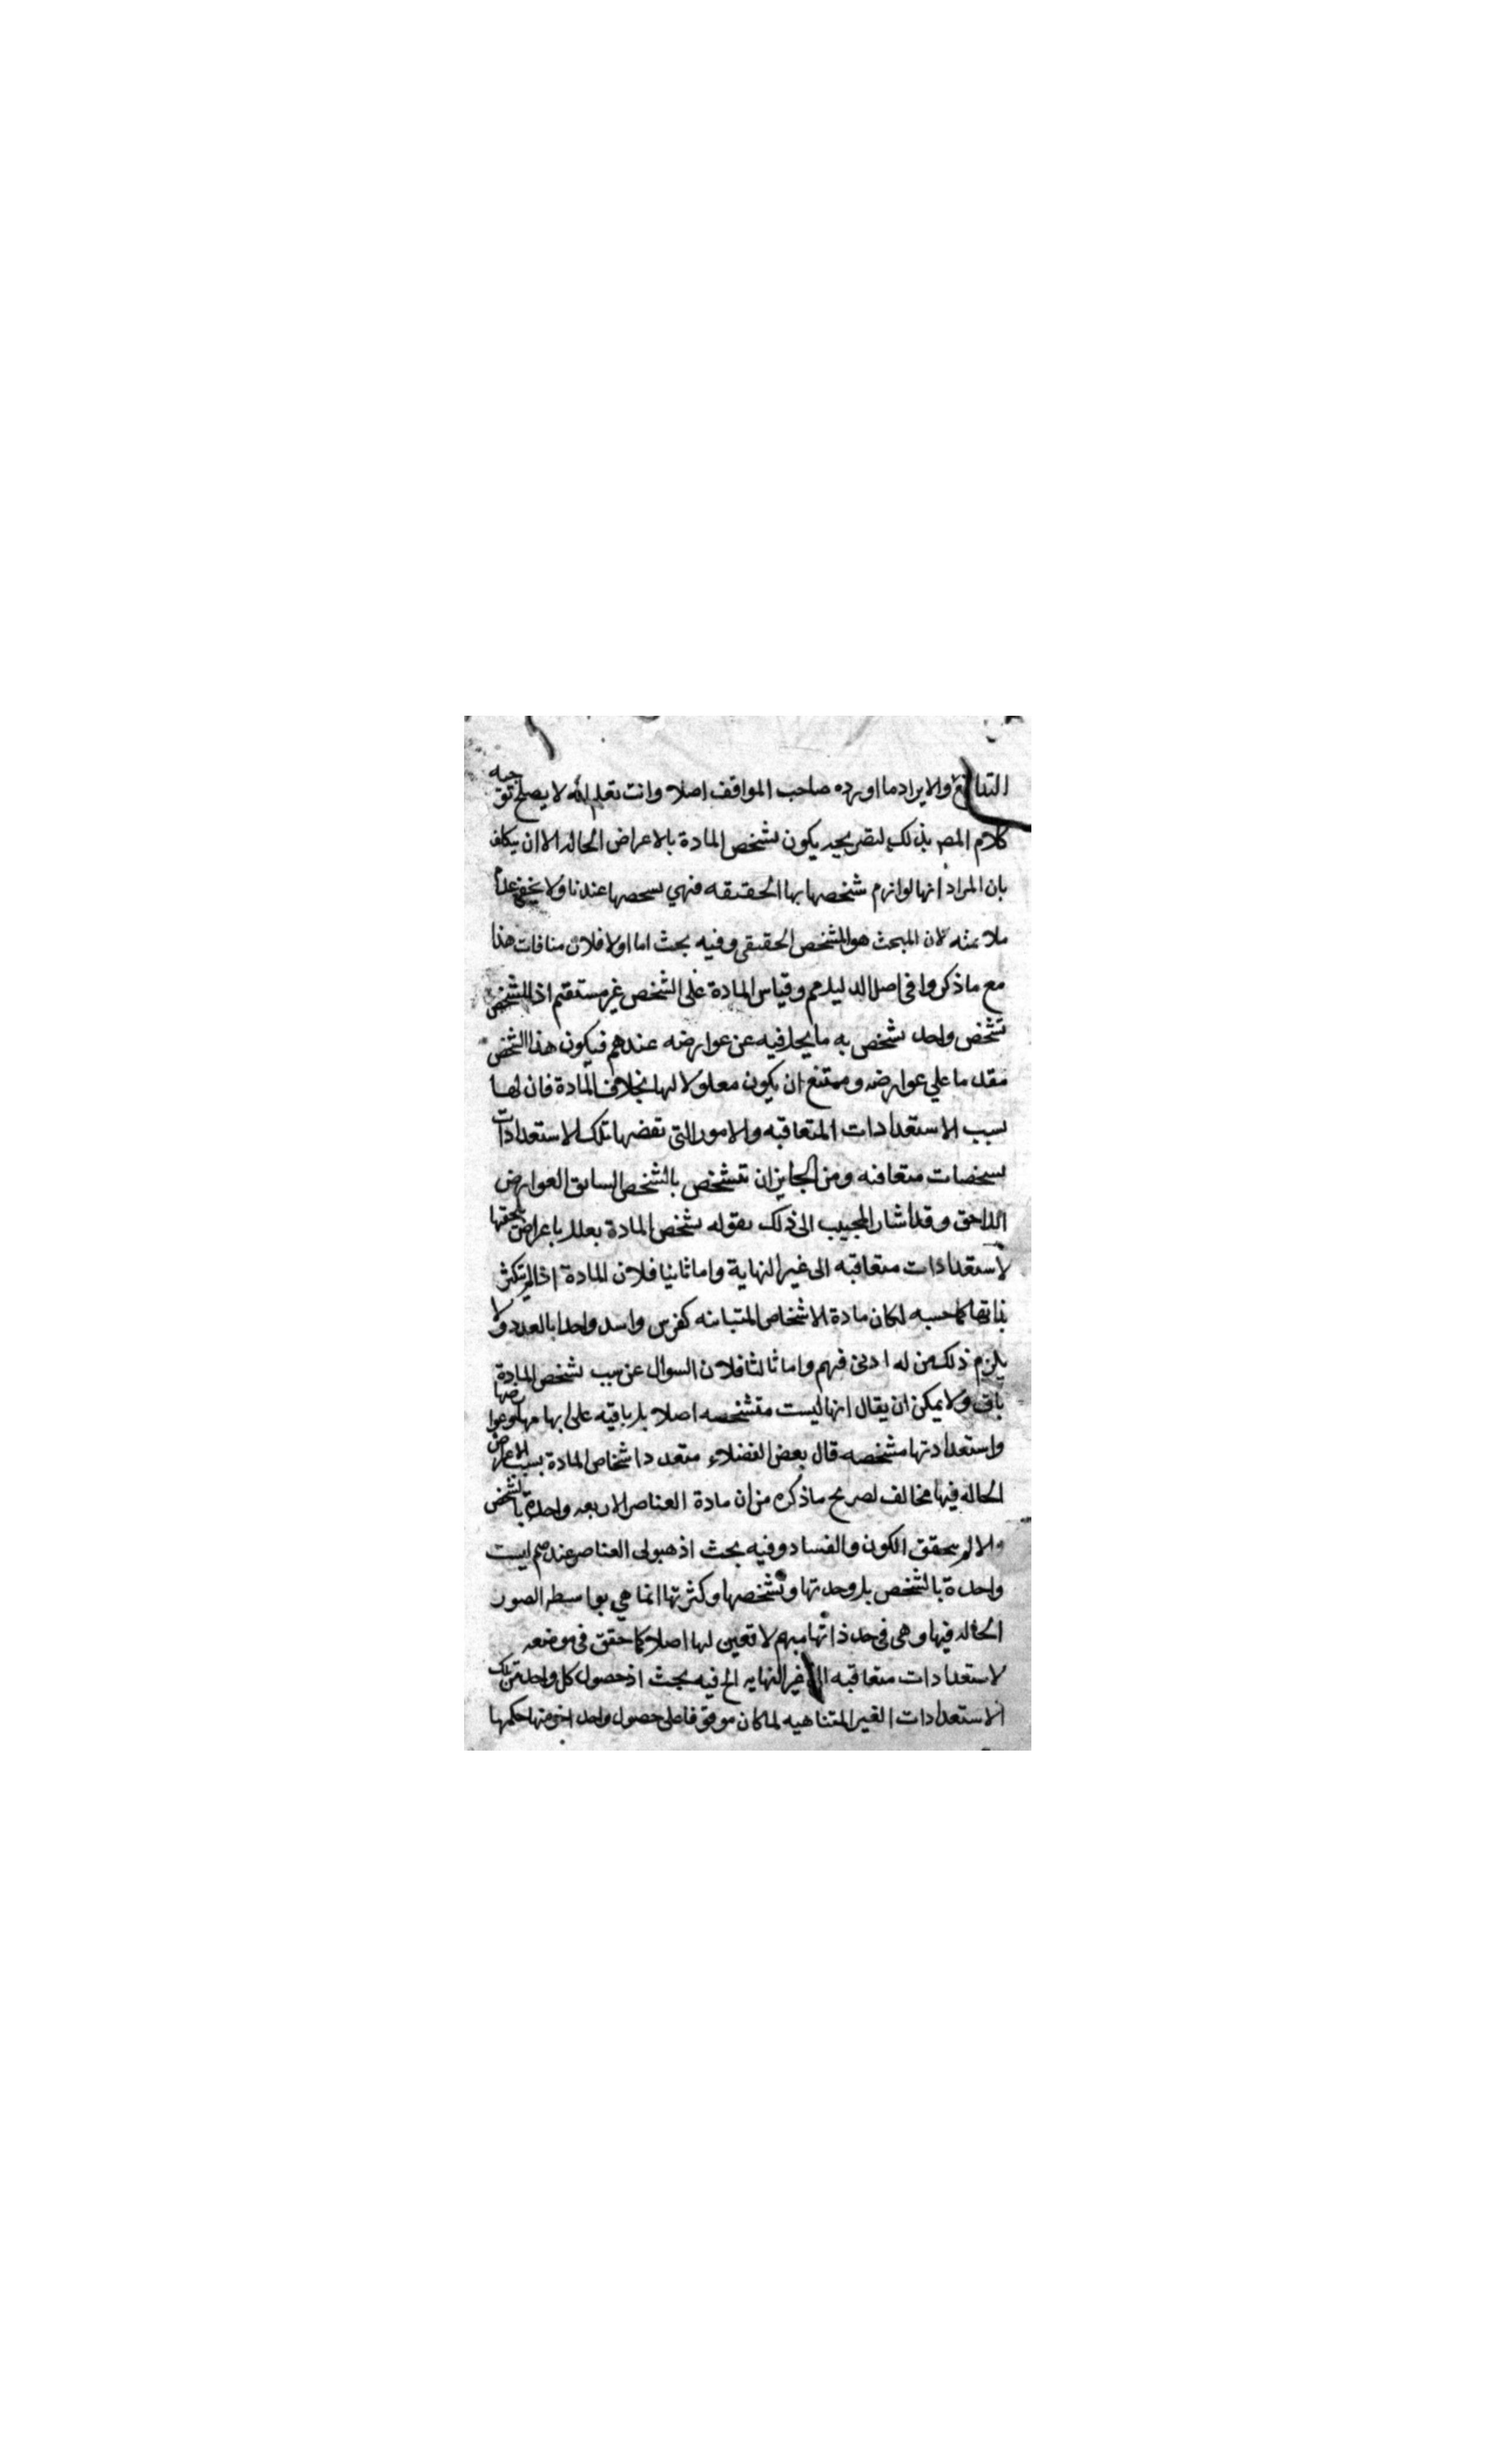 التنافي والايراد ما اورده صاحب المواقف اصلا وانت تعلم انه لا يصلح توجيه
كلام المصـ بذلك لتصريحه بكون تشخص المادة بالاعراض الحاله الا ان يتكلف
بان المراد انها لوازم شخصها بها الحقيقه فهي تشخصها عندنا ولا يخفى عدم
ملايمته لان المبحث هو التشخص الحقيقي وفيه بحث اما اولا فلان منافات هذا
مع ما ذكروا في اصل الدليل وقياس المادة على الشخص غير مستقيم اذ الشخص
شخص واحد تشخص به ما يحل فيه عن عوارضه عندهم فيكون هذا الشخص
مقدما علي عوارضه وممتنع ان يكون معلولا لها بخلاف المادة فان لها
بسبب الاستعدادات المتعاقبه والامور التي تقضها تلك الاستعدادات
تشخصات متعاقبه ومن الجايز ان تتشخص بالتشخص السابق العوارض
اللاحق وقد اشار المجيب الى ذلك بقوله تشخص المادة يعلل باعراض تلحقها
لاستعدادات متعاقبه الى غير النهاية واما ثانيا فلان المادة اذا لم تتكثر
بذاتها كما حسبه لكان مادة الاشخاص المتباينه كفرس واسد واحدا بالعدد ولا
يلزم ذلك من له ادنى فهم واما ثالثا فلان السوال عن سبب تشخص المادة
باق ولا يمكن ان يقال انها ليست متشخصه اصلا بل باقيه على ابهامها وعوارضها
واستعدادتها مشخصه قال بعض الفضلاء متعدد اشخاص المادة بسبب الاعراض
الحاله فيها مخالف لصريح ما ذكره من ان مادة العناصر الاربعه واحدة بالشخص
والا لم يتحقق الكون والفساد وفيه بحث اذ هيولى العناصر عندهم ليست
واحدة بالشخص بل وحدتها وتشخصها وكثرتها انما هي بواسطه الصور
الحاله فيها وهى في حد ذاتها مبهم لا تعين لها اصلا كما حقق في موضعه
لاستعدادات متعاقبه الى غير النهايه الخ فيه بحث اذ حصول كل واحد من تلك
الاستعدادات الغير المتناهيه لما كان موقوفا على حصول واحد اخر منها حكمها